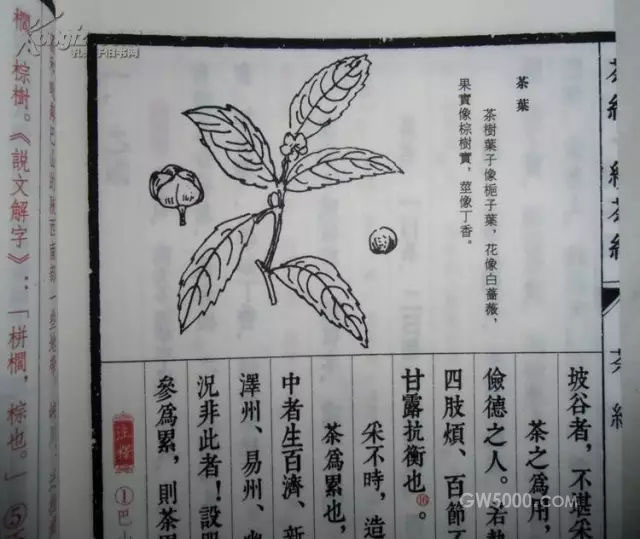 茶經 續茶經
茶經
茶葉
茶樹葉子像梔子葉，花像白薔薇，
果實像棕樹實，莖像丁香。
坡谷者，不堪采
茶之為用，
儉德之人。若熱
四肢煩、百節不
甘露抗衡也⑯。
采不時，造
茶為累也，
中者生百濟、新
澤州、易州、幽
況非此者！設服
參為累，則茶
注釋
①巴山
櫚，棕樹。《說文解字》：「栟櫚，棕也。」⑤
孔夫子旧书网
GW5000.com